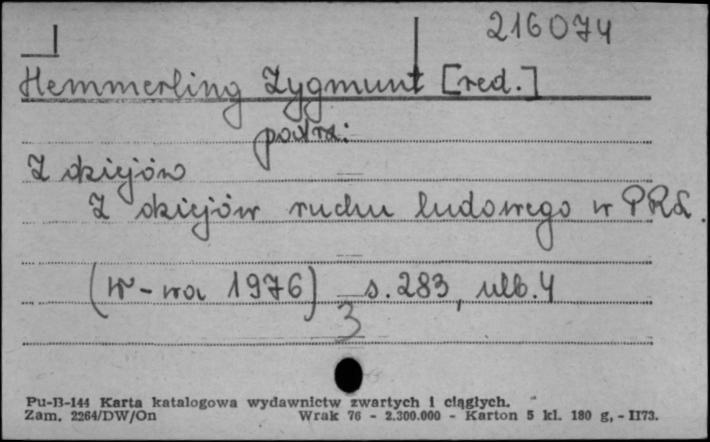 216074
Hemmerling Zygmunt [red.]
patrz:
Z dziejów
Z dziejów ruchu ludowego w PRL.
(W-wa 1976) s. 283, nlb. 4
3
Pu-B-144 Karta katalogowa wydawnictw zwartych i ciągłych.
Zam. 2264/DW/On Wrak 76 - 2.300.000 - Karton 5 kl. 180 g, - II73.